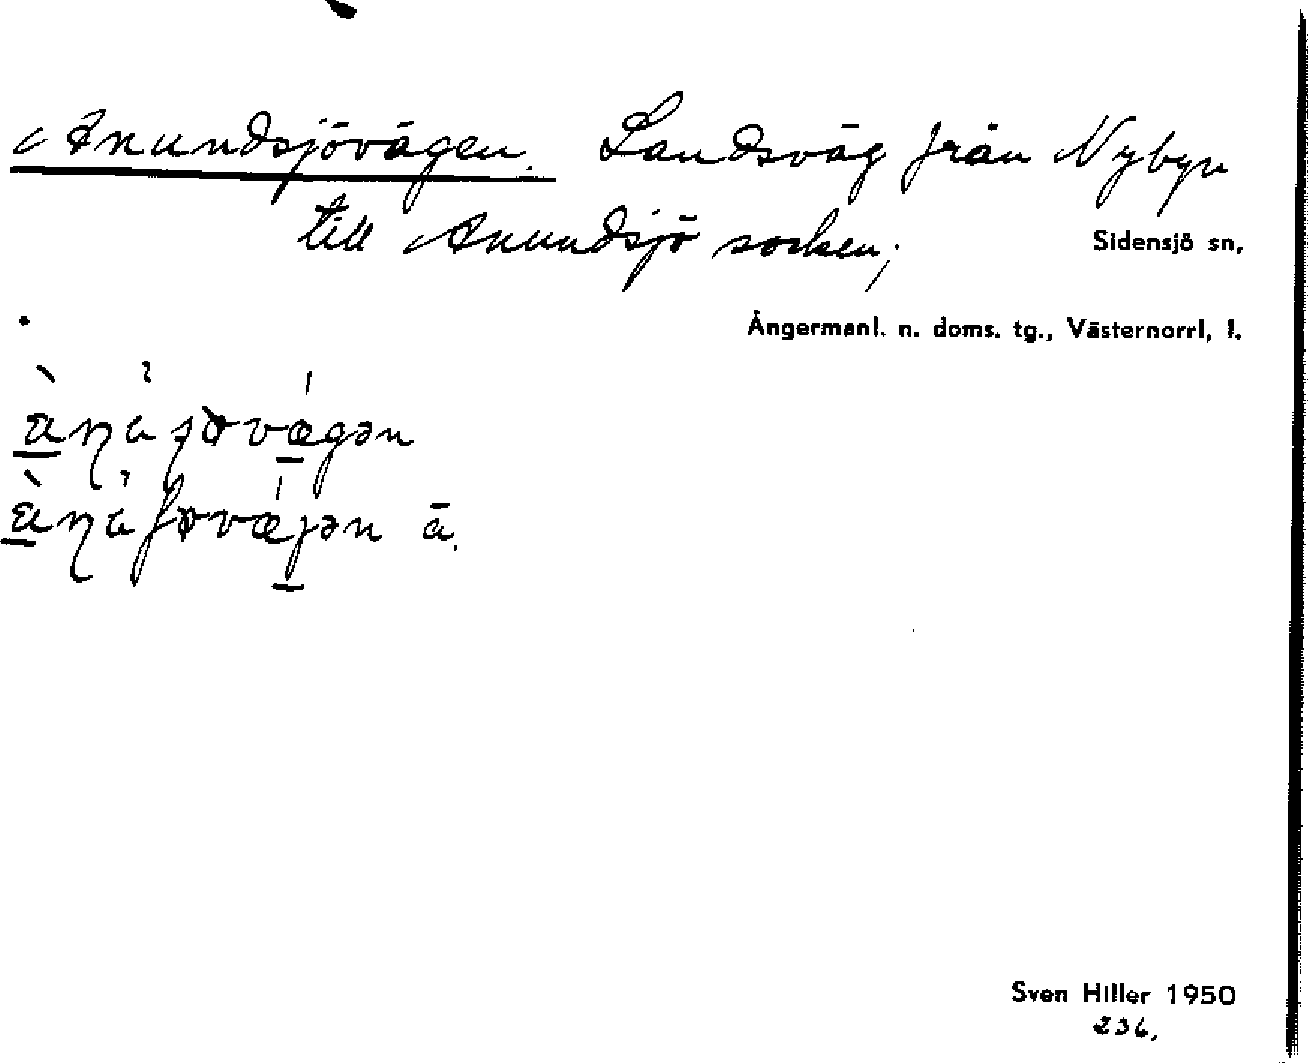 Anundsjövägen. Landsväg från Nybyn
till Anundsjö socken;
Sidensjö sn.
Ångermanl. n. doms. tg., Västernorrl. l.
ā.
Sven Hiller 1950
236.